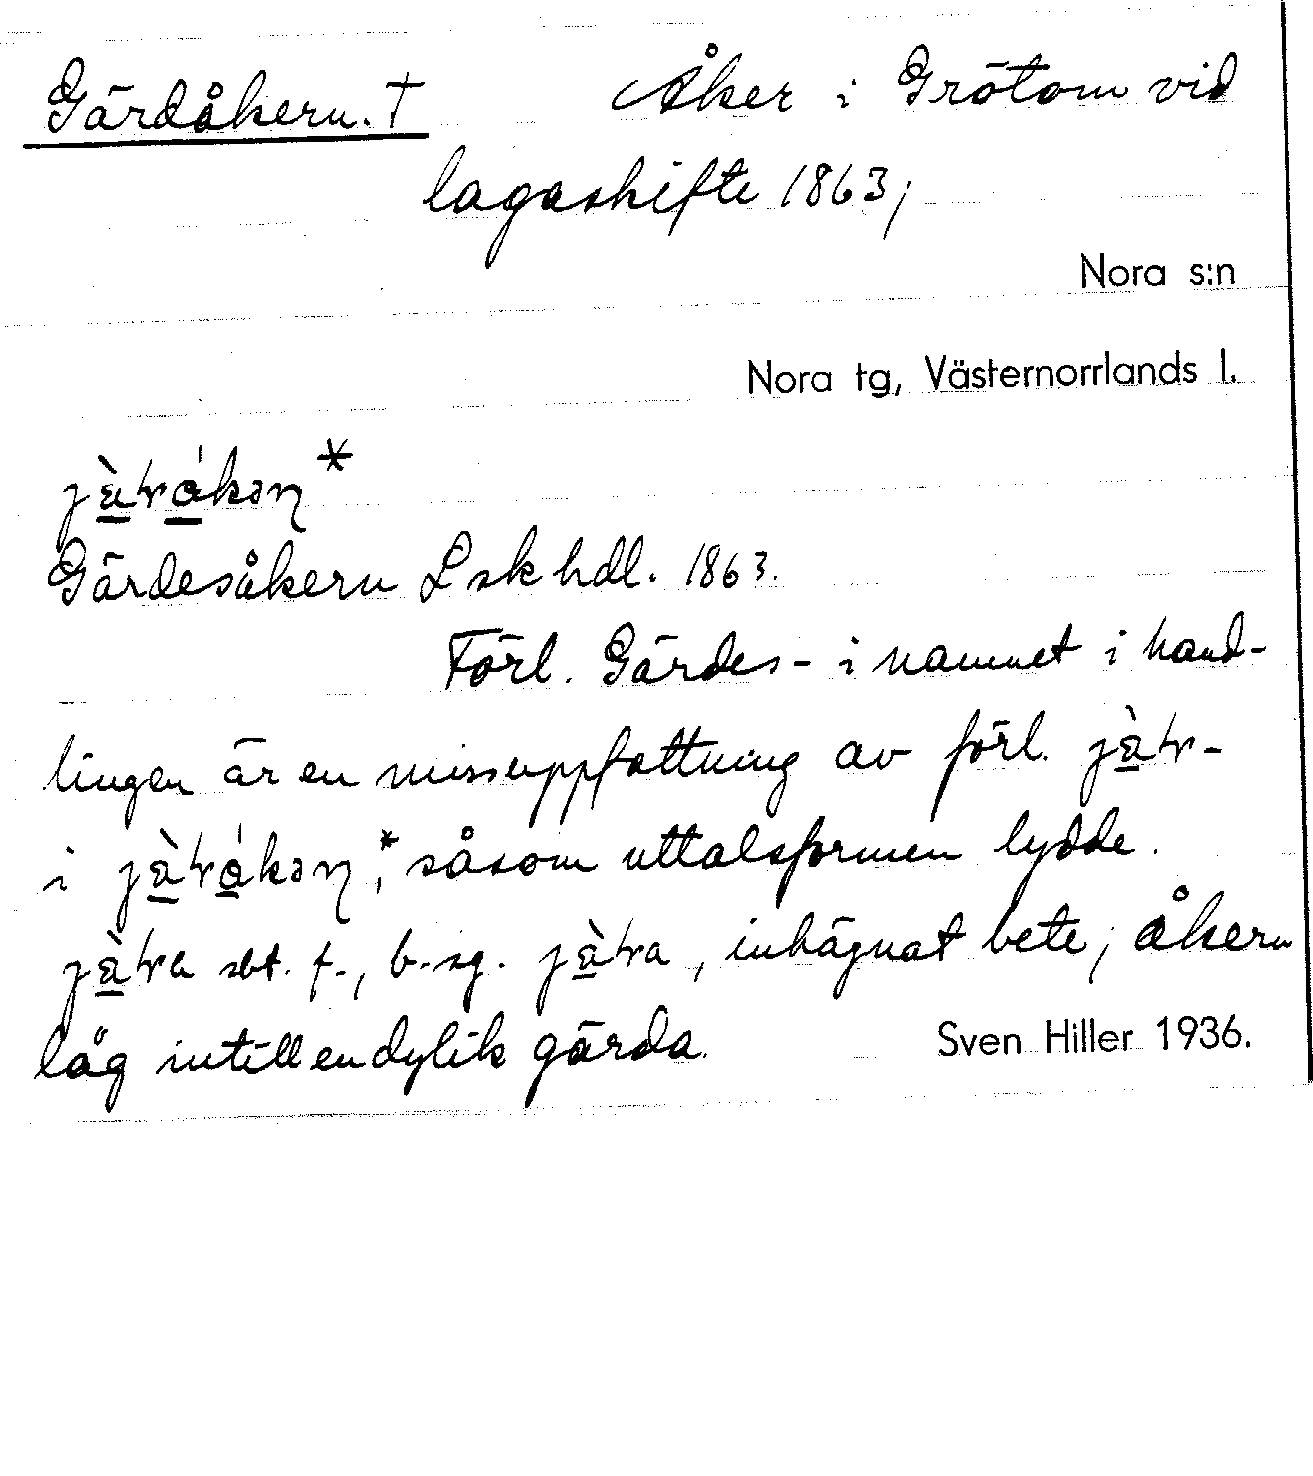 Gärdåkern. † Åker i Grötom vid
lagaskifte 1863;
Nora s:n
Nora tg, Västernorrlands l.
Gärdesåkern Lsk hdl. 1863.
Förl. Gärdes- i namnet i hand-
lingen är en missuppfattning av förl.
i såsom uttalsformen lydde.
sbt. f., b. sg. , inhägnat bete; åkern
låg intill en dylik gärda. Sven Hiller 1936.